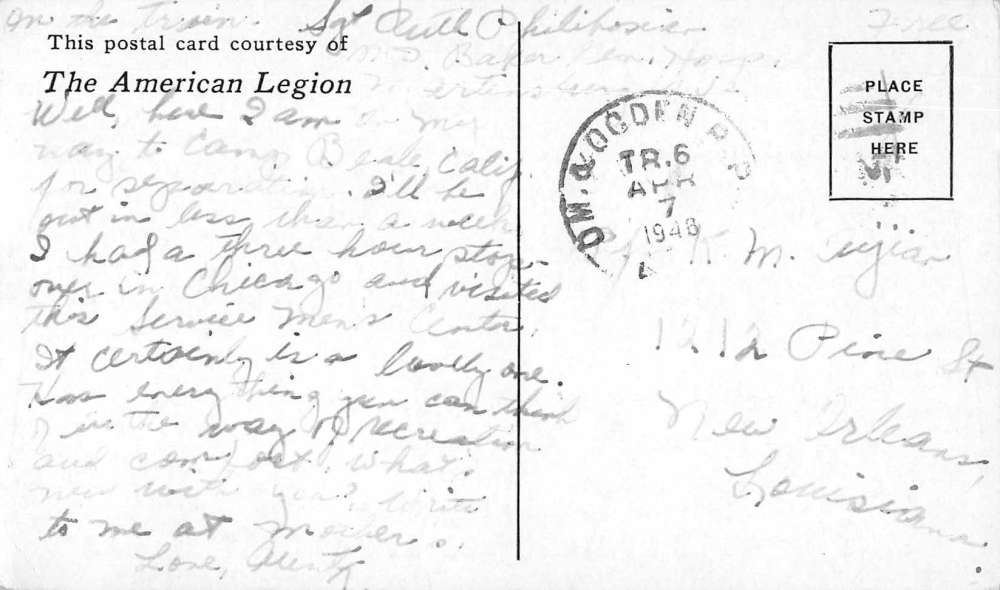 On the train. Sgt Ruth Philibosian Free
This postal card courtesy of
Baker Gen. Hospi
The American Legion
Martinsburg W. Va
Well, here I am on my
way to Camp Beale, Calif.
for separation. I'll be
out in less than a week.
I had a three hour stop
over in Chicago and visited
this Service Men's Center.
It certainly is a lovely one.
Has everything you can think
of in the way of recreation
and comfort. What's
new with you? Write
to me at Mother's.
Love, Aunty
OM. & OGDEN R.P.O.
TR. 6
APR
7
1946
PLACE
STAMP
HERE
K. M.
1212 Pine St
New Orleans,
Louisiana.